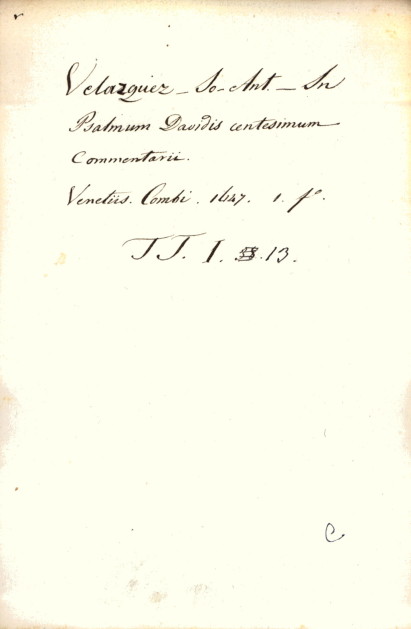 Velazquez - Jo- Ant. - In
Psalmum Davidis centesimum
Commentarii.
Venetiis. Combi. 1647. 1. fº.
TT. I. 13.
C